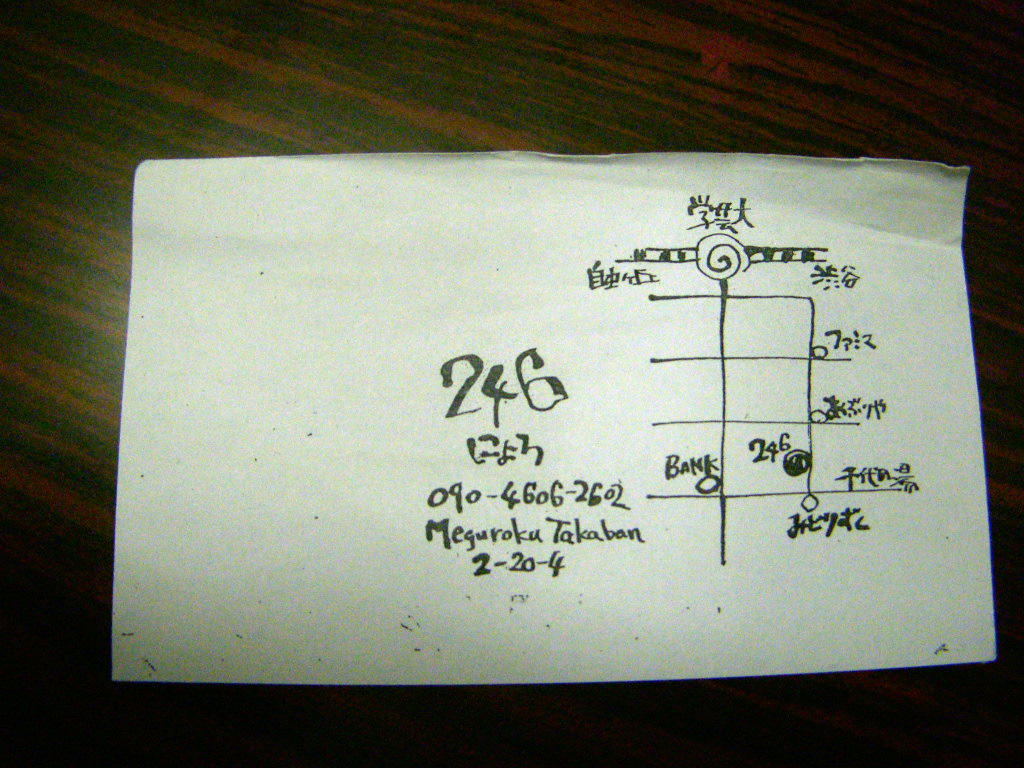 学芸大
自由が丘
渋谷
ファミマ
あぶりや
246
BANK
千代の湯
みどりずし
246
にょろ
090-4606-2602
Meguroku Takaban
2-20-4